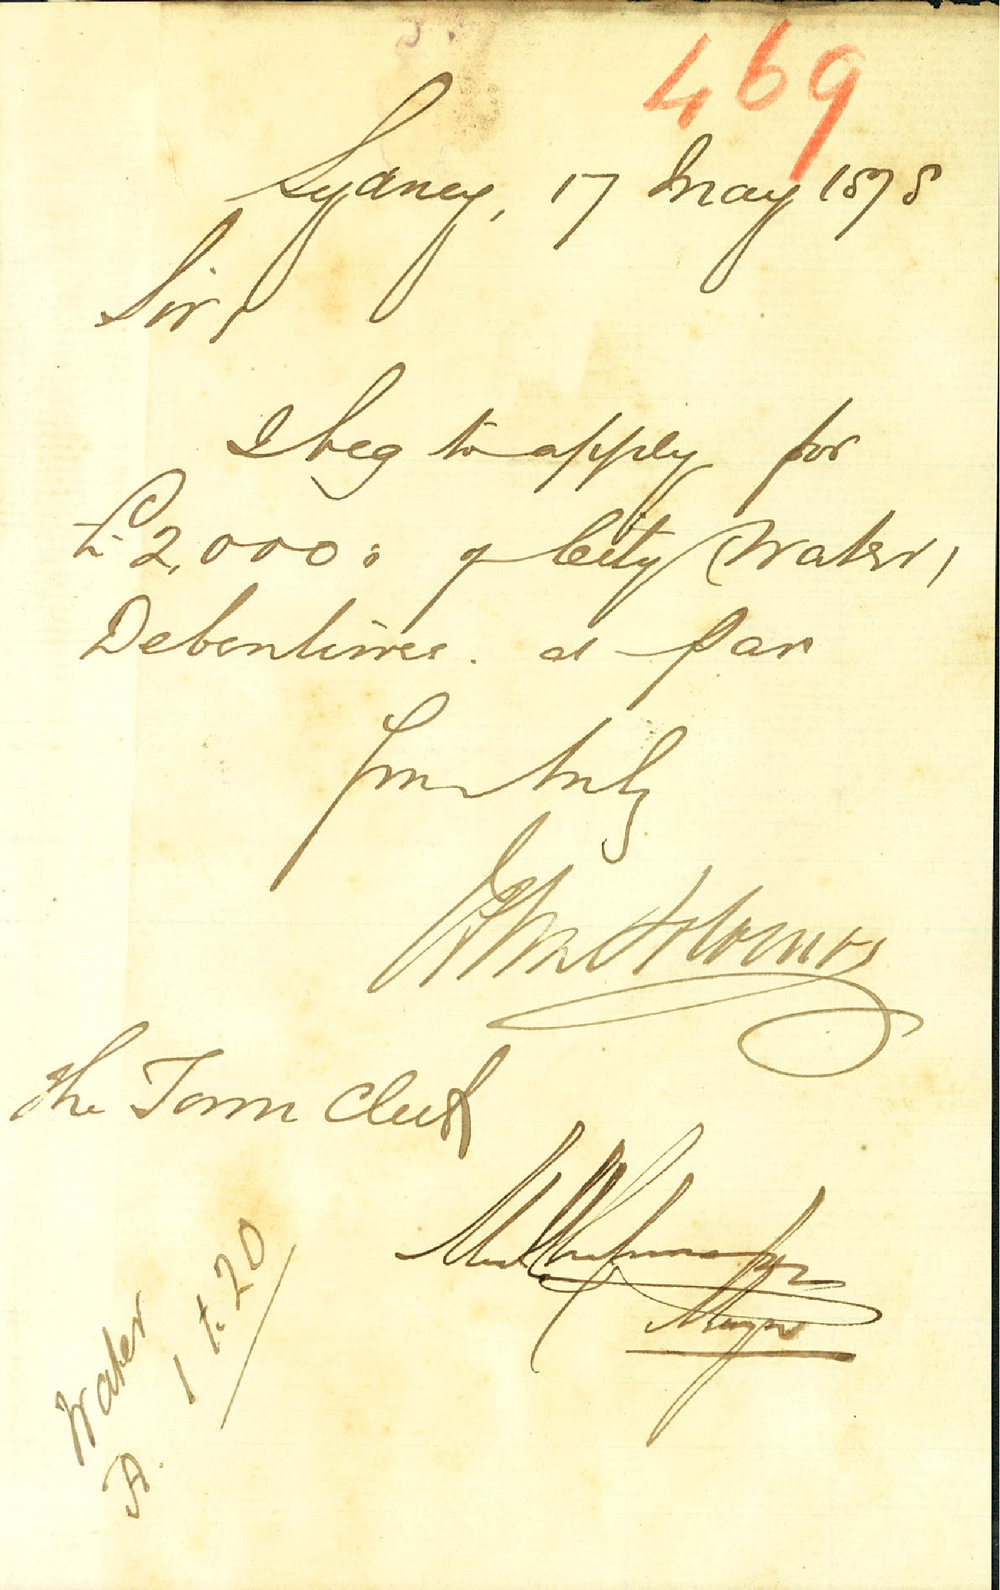 469
Sydney, 17 May 1878
Sir,
I beg to apply for
£2,000: of City Water,
Debentures. at par
Yours truly
The Town Clerk
Mayor
Water
A. 1 to 20